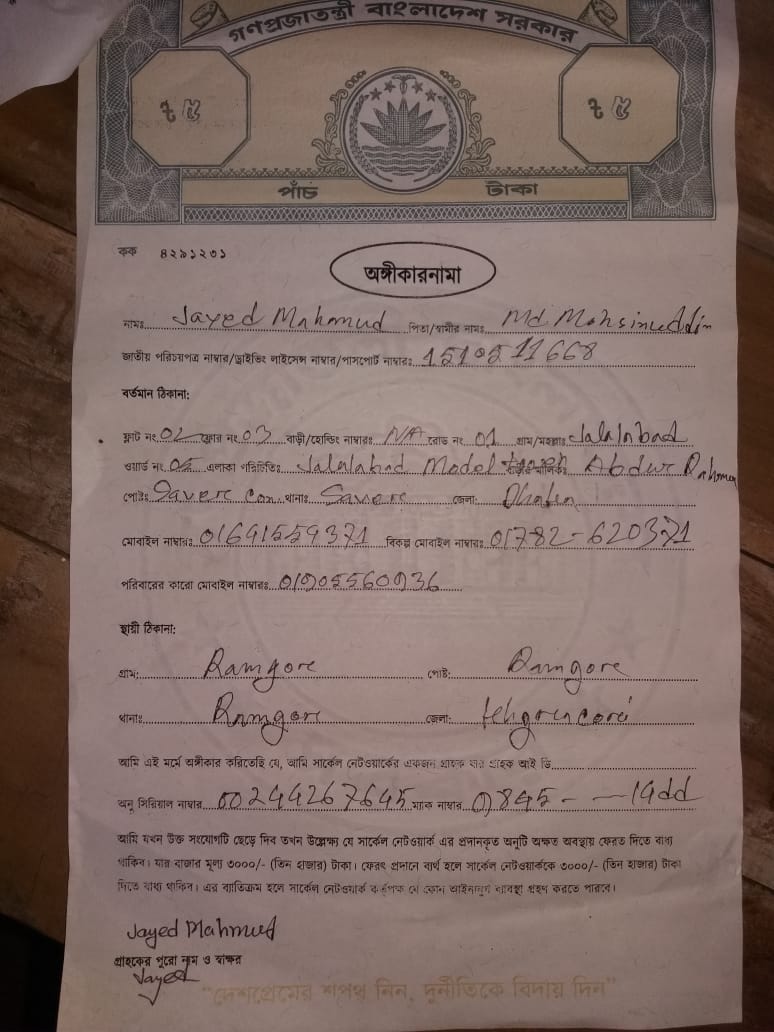 গণপ্রজাতন্ত্রী বাংলাদেশ সরকার
৳ ৫ ৳ ৫
পাঁচ টাকা
কক ৪২৯১২৩১
অঙ্গীকারনামা
নামঃ Jayed Mahmud পিতা/স্বামীর নামঃ Md Mohsinuddin
জাতীয় পরিচয়পত্র নাম্বার/ড্রাইভিং লাইসেন্স নাম্বার/পাসপোর্ট নাম্বারঃ 1510511668
বর্তমান ঠিকানা:
ফ্লাট নং 02 ফ্লোর নং 03 বাড়ী/হোল্ডিং নাম্বারঃ N/A রোড নং 01 গ্রাম/মহল্লাঃ Jalalabad
ওয়ার্ড নং 05 এলাকা পরিচিতিঃ Jalalabad Model Abdur Rahman
পোষ্টঃ থানাঃ Savare জেলা:
মোবাইল নাম্বারঃ 01641559371 বিকল্প মোবাইল নাম্বারঃ 01782-620371
পরিবারের কারো মোবাইল নাম্বারঃ
স্থায়ী ঠিকানা:
গ্রাম: Ramgore পোষ্ট: Ramgore
থানাঃ Ramgore জেলা:
আমি এই মর্মে অঙ্গীকার করিতেছি যে, আমি সার্কেল নেটওয়ার্কের একজন গ্রাহক যার গ্রাহক আই ডি
অনু সিরিয়াল নাম্বার 00244267645 ম্যাক নাম্বার
আমি যখন উক্ত সংযোগটি ছেড়ে দিব তখন উল্লেক্ষ্য যে সার্কেল নেটওয়ার্ক এর প্রদানকৃত অনুটি অক্ষত অবস্থায় ফেরত দিতে বাধ্য
থাকিব। যার বাজার মূল্য ৩০০০/- (তিন হাজার) টাকা। ফেরৎ প্রদানে ব্যর্থ হলে সার্কেল নেটওয়ার্ককে ৩০০০/- (তিন হাজার) টাকা
দিতে বাধ্য থাকিব। এর ব্যতিক্রম হলে সার্কেল নেটওয়ার্ক কর্তৃপক্ষ যে কোন আইনানুগ ব্যবস্থা গ্রহণ করতে পারবে।
Jayed Mahmud
গ্রাহকের পুরো নাম ও স্বাক্ষর
Jayed
"দেশপ্রেমের শপথ নিন, দুর্নীতিকে বিদায় দিন"